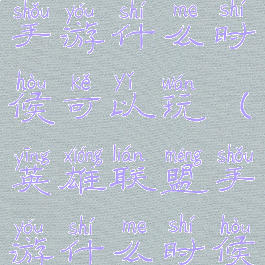 shǒu yóu shí me shí
手游什么时
hòu kě yǐ wán
候可以玩（
yīng xióng lián méng shǒu
英雄联盟手
yóu shí me shí hòu
游什么时候